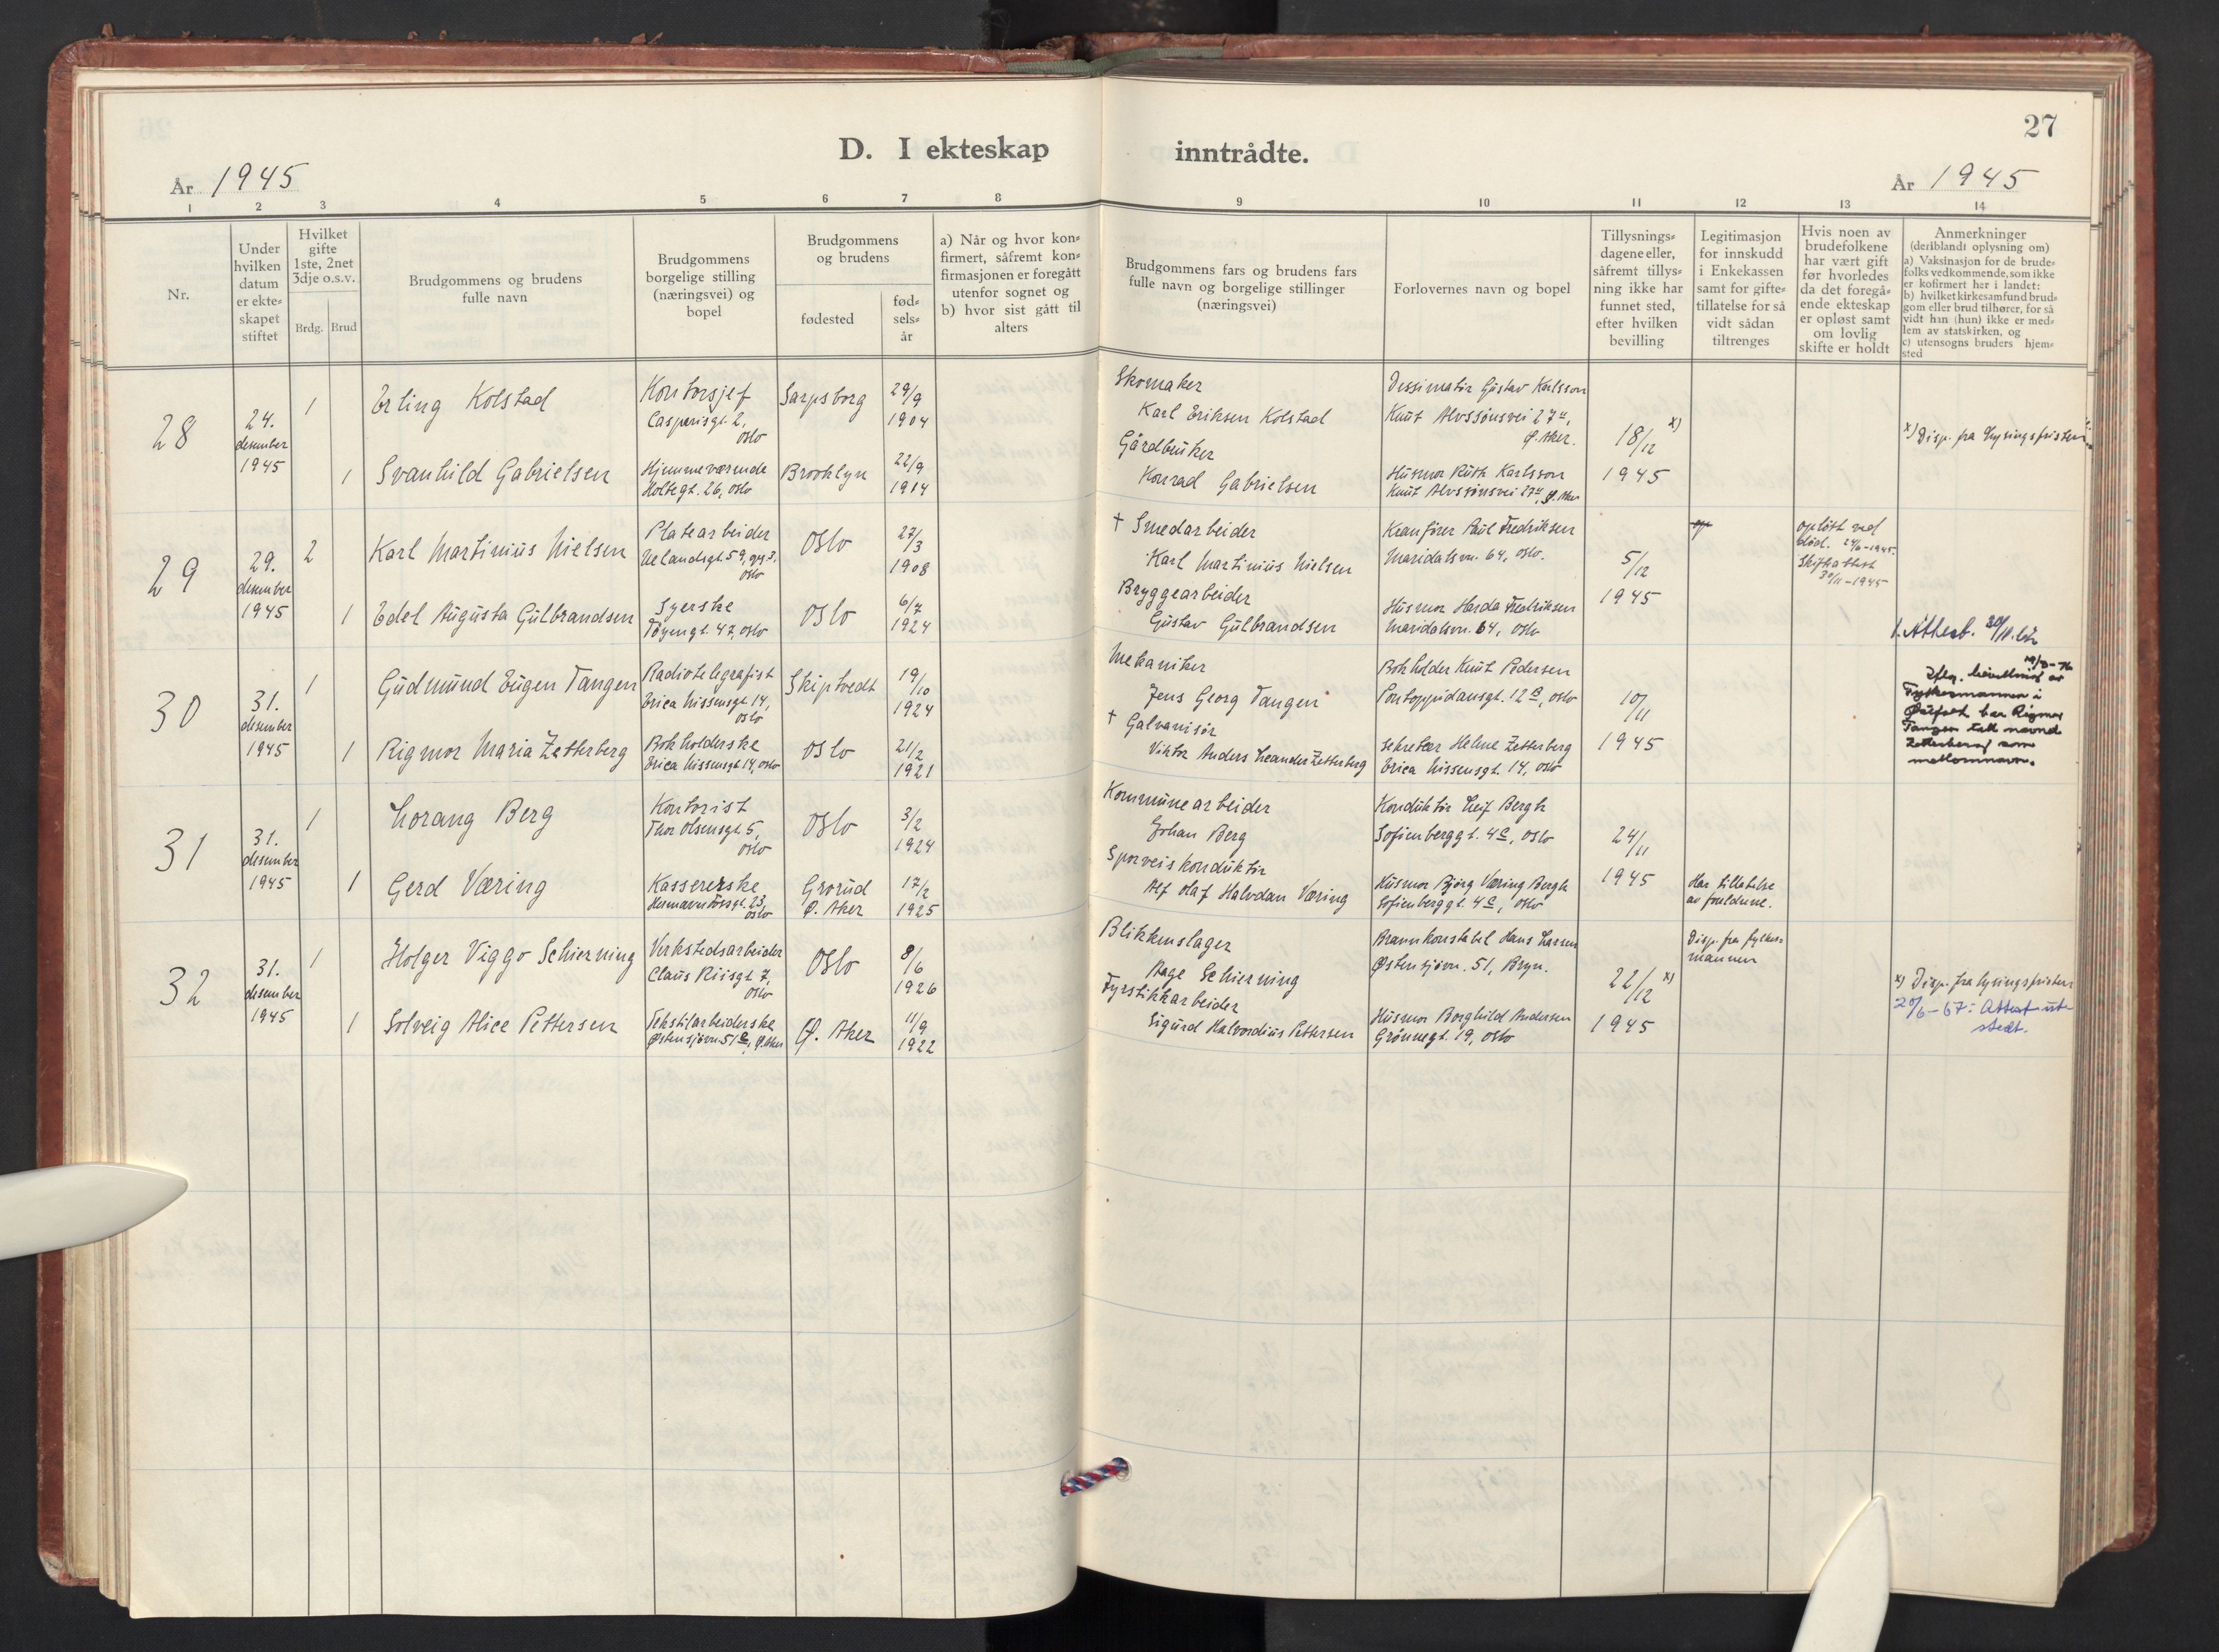 27
D. I ekteskap inntrådte.
År 1945
År 1945
1 2 3 4 5 6 7 8 9 10 11 12 13 14
Nr.
Under hvilken datum er ekte=skapet stiftet
Hvilket gifte 1ste, 2net 3dje o.s.v.
Brdg. Brud
Brudgommens og brudens fulle navn
Brudgommens borgelige stilling (næringsvei) og bopel
Brudgommens og brudens
fødested
fød=sels=år
a) Når og hvor kon=firmert, såfremt kon=firmasjonen er foregått utenfor sognet og
b) hvor sist gått til alters
Brudgommens fars og brudens fars fulle navn og borgelige stillinger (næringsvei)
Forlovernes navn og bopel
Tillysnings=dagene eller, såfremt tillys=ning ikke har funnet sted, efter hvilken bevilling
Legitimasjon for innskudd i Enkekassen samt for gifte=tillatelse for så vidt sådan tiltrenges
Hvis noen av brudefolkene har vært gift før hvorledes da det foregå=ende ekteskap er opløst samt om lovlig skifte er holdt
Anmerkninger (deriblandt oplysning om)
a) Vaksinasjon for de brude=folks vedkommende, som ikke er kofirmert her i landet:
b) hvilket kirkesamfund brud=gom eller brud tilhører, for så vidt han (hun) ikke er med=lem av statskirken, og
c) utensogns bruders hjem=sted
28
24. desember 1945
1
Erling Kolstad
Kontorsjef
Casparisgt. 2, Oslo
Sarpsborg
29/9 1904
Skomaker
Karl Eriksen Kolstad
Gustav Karlsson
Knut Alvssønsvei 27a, Ø. Aker.
18/12 x)
1945
x) Disp. fra lysingsfristen
1
Svanhild Gabrielsen
Hjemmeværende
Holtegt. 26, Oslo
Brooklyn
22/9 1914
Gårdbruker
Konrad Gabrielsen
Husmor Ruth Karlsson
Knut Alvssønsvei 27a, Ø. Aker
29
29. desember 1945
2
Karl Martinius Nielsen
Platearbeider
Uelandsgt. 59, opg. 3, Oslo
Oslo
27/3 1908
† Smedarbeider
Karl Martinius Nielsen
Kranfører Paul Fredriksen
Maridalsvn. 64, Oslo.
5/12
1945
opløst ved død. 24/6-1945.
Skifteattest 30/11-1945
1
Edel Augusta Gulbrandsen
Syerske
Tøyengt. 47, Oslo
Oslo
6/7 1924
Bryggearbeider
Gustav Gulbrandsen
Husmor Harda Fredriksen
Maridalsvn. 64, Oslo
30
31. desember 1945
1
Gudmund Eugen Tangen
Radiotelegrafist
Erica Nissensgt. 14, Oslo
Skiptvedt
19/10 1924
Mekaniker
Jens Georg Tangen
Bokholder Knut Pedersen
Pontoppidansgt. 12 B, Oslo
10/11
1945
1. Attest.
Iflg. bevilling av
Fylkesmannen i
Østfold har Rigmor
Tangen tatt navnet
Zetterberg som
mellomnavn.
1
Rigmor Maria Zetterberg
Bokholderske
Erica Nissensgt. 14, Oslo
Oslo
21/2 1921
† Galvanisør
Viktor Anders Leander Zetterberg
Sekretær Helene Zetterberg
Erica Nissensgt. 14, Oslo
31
31. desember 1945
1
Lorang Berg
Kontorist
Thor Olsensgt. 5, Oslo
Oslo
3/2 1924
Kommunearbeider
Johan Berg
Konduktør Leif Bergh
Sofienberggt. 4 C, Oslo
24/11
1945
1
Gerd Væring
Kassererske
23, Oslo
Grorud Ø. Aker
17/2 1925
Sporveiskonduktør
Alf Olaf Halvdan Væring
Husmor Bjørg Væring Bergh
Sofienberggt. 4 C, Oslo
Har tillatelse av foreldrene.
32
31. desember 1945
1
Holger Viggo Schierning
Verkstedsarbeider
Claus Riisgt. 7, Oslo
Oslo
8/6 1926
Blikkenslager
Aage Schierning
Brannkonstabel Hans Larsen
Østensjøvn. 51, Bryn.
22/12 x)
1945
Disp. fra fylkesmannen
x) Disp. fra lysingsfristen
20/6-67: Attest ut-
stedt.
1
Solveig Alice Pettersen
Tekstilarbeiderske
Østensjøvn. 51 B, Ø. Aker
Ø. Aker
11/9 1922
Fyrstikkarbeider
Sigurd Halvordius Pettersen
Husmor Borghild Andersen
Grønnegt. 19, Oslo